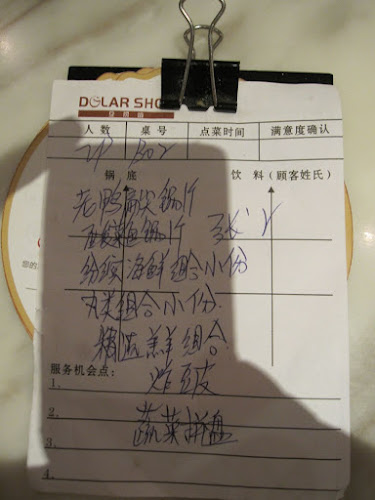 DOLAR SHOP
豆捞坊
人数 桌号 点菜时间 满意度确认
2P 802
锅底 饮料（顾客姓氏）
老鸭 锅1个
锅1个
缤纷海鲜组合小份
丸类组合小份
精选羔羊组合
服务机会点：
1.
炸豆皮
2.
蔬菜拼盘
3.
4.